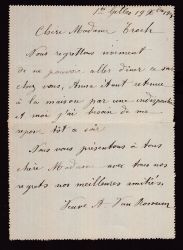 St Gilles 19 Xbre
Chère Madame Troch
Nous regrettons vivement
de ne pouvoir aller dîner ce soir
chez vous, Anna étant retenue
à la maison par une indisposition
et moi j'ai besoin de me
reposer tôt ce soir
Nous vous présentons à tous
chère Madame avec tous nos
regrets nos meilleures amitiés.
Veuve A Van